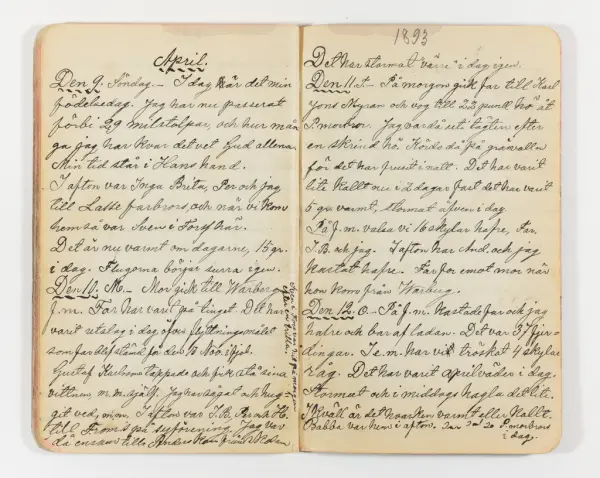 April.
Den 9. Söndag. — I dag är det min
födelsedag. Jag har nu passerat
förbi 29 milstolpar, och hur mån
ga jag har kvar det vet Gud allena.
Min tid står i Hans hand.
I afton var Inga Brita, Per och jag
till Lasse farbrors, och när vi kom
hem så var Sven i Torp här.
Det är nu varmt om dagarne, 15 gr.
i dag. Flugorna börjar surra igen.
Den 10. M. — Mor gick till Warberg
f.m. Far har varit på tinget. Det har
varit utslag i dag öfver flyttningsmålet
som far blef stämd för den 15 Nov. i fjol.
Gustaf Karlsons tappade och fick stå sina
vittnen, m.m. sjelf. Jag har sågat och hug
git ved, m.m. I afton var I.B. Per och
till From:s på syförening. Jag var
då ensam tills Anders kom från
1893
Det har stormat "värre" i dag igen.
Den 11. t — På morgon gick far till Karl
Jons Myran och vog till 22 pund hö åt
P. morbror. Jag var då seti tagten efter
en skrind hö. Körde då på gräsvallen
för det har frusit i natt. Det har varit
lite kallt nu i 2 dagar fast det har varit
5 gr. varmt, stormat äfven i dag.
På f.m. valsa vi 16 skylar hafre, Far.
I.B. och jag. I afton har And. och jag
kastat hafre. Far for emot mor när
hon kom från Warberg.
Den 12. O. — På f.m. kastade far och jag
hafre och bar af ladan. Det var 37 fjer
dingar. I e.m. har vi tröskat 4 skylar
råg. Det har varit aprilväder i dag.
Stormat och i middags hagla det lite.
I kväll är det hvarken varmt eller kallt.
Babba var hem i afton. P. morbrors
i dag.